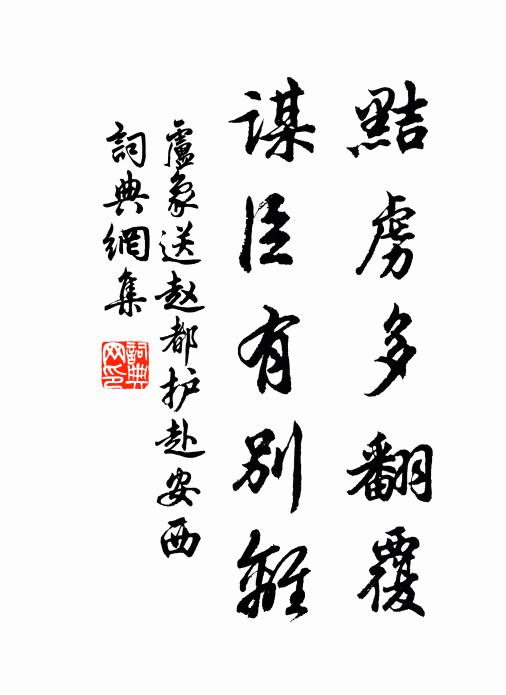 黠虏多翻覆
謀臣有別離
盧象送赵都护赴安西
詞典網集
詞典网印